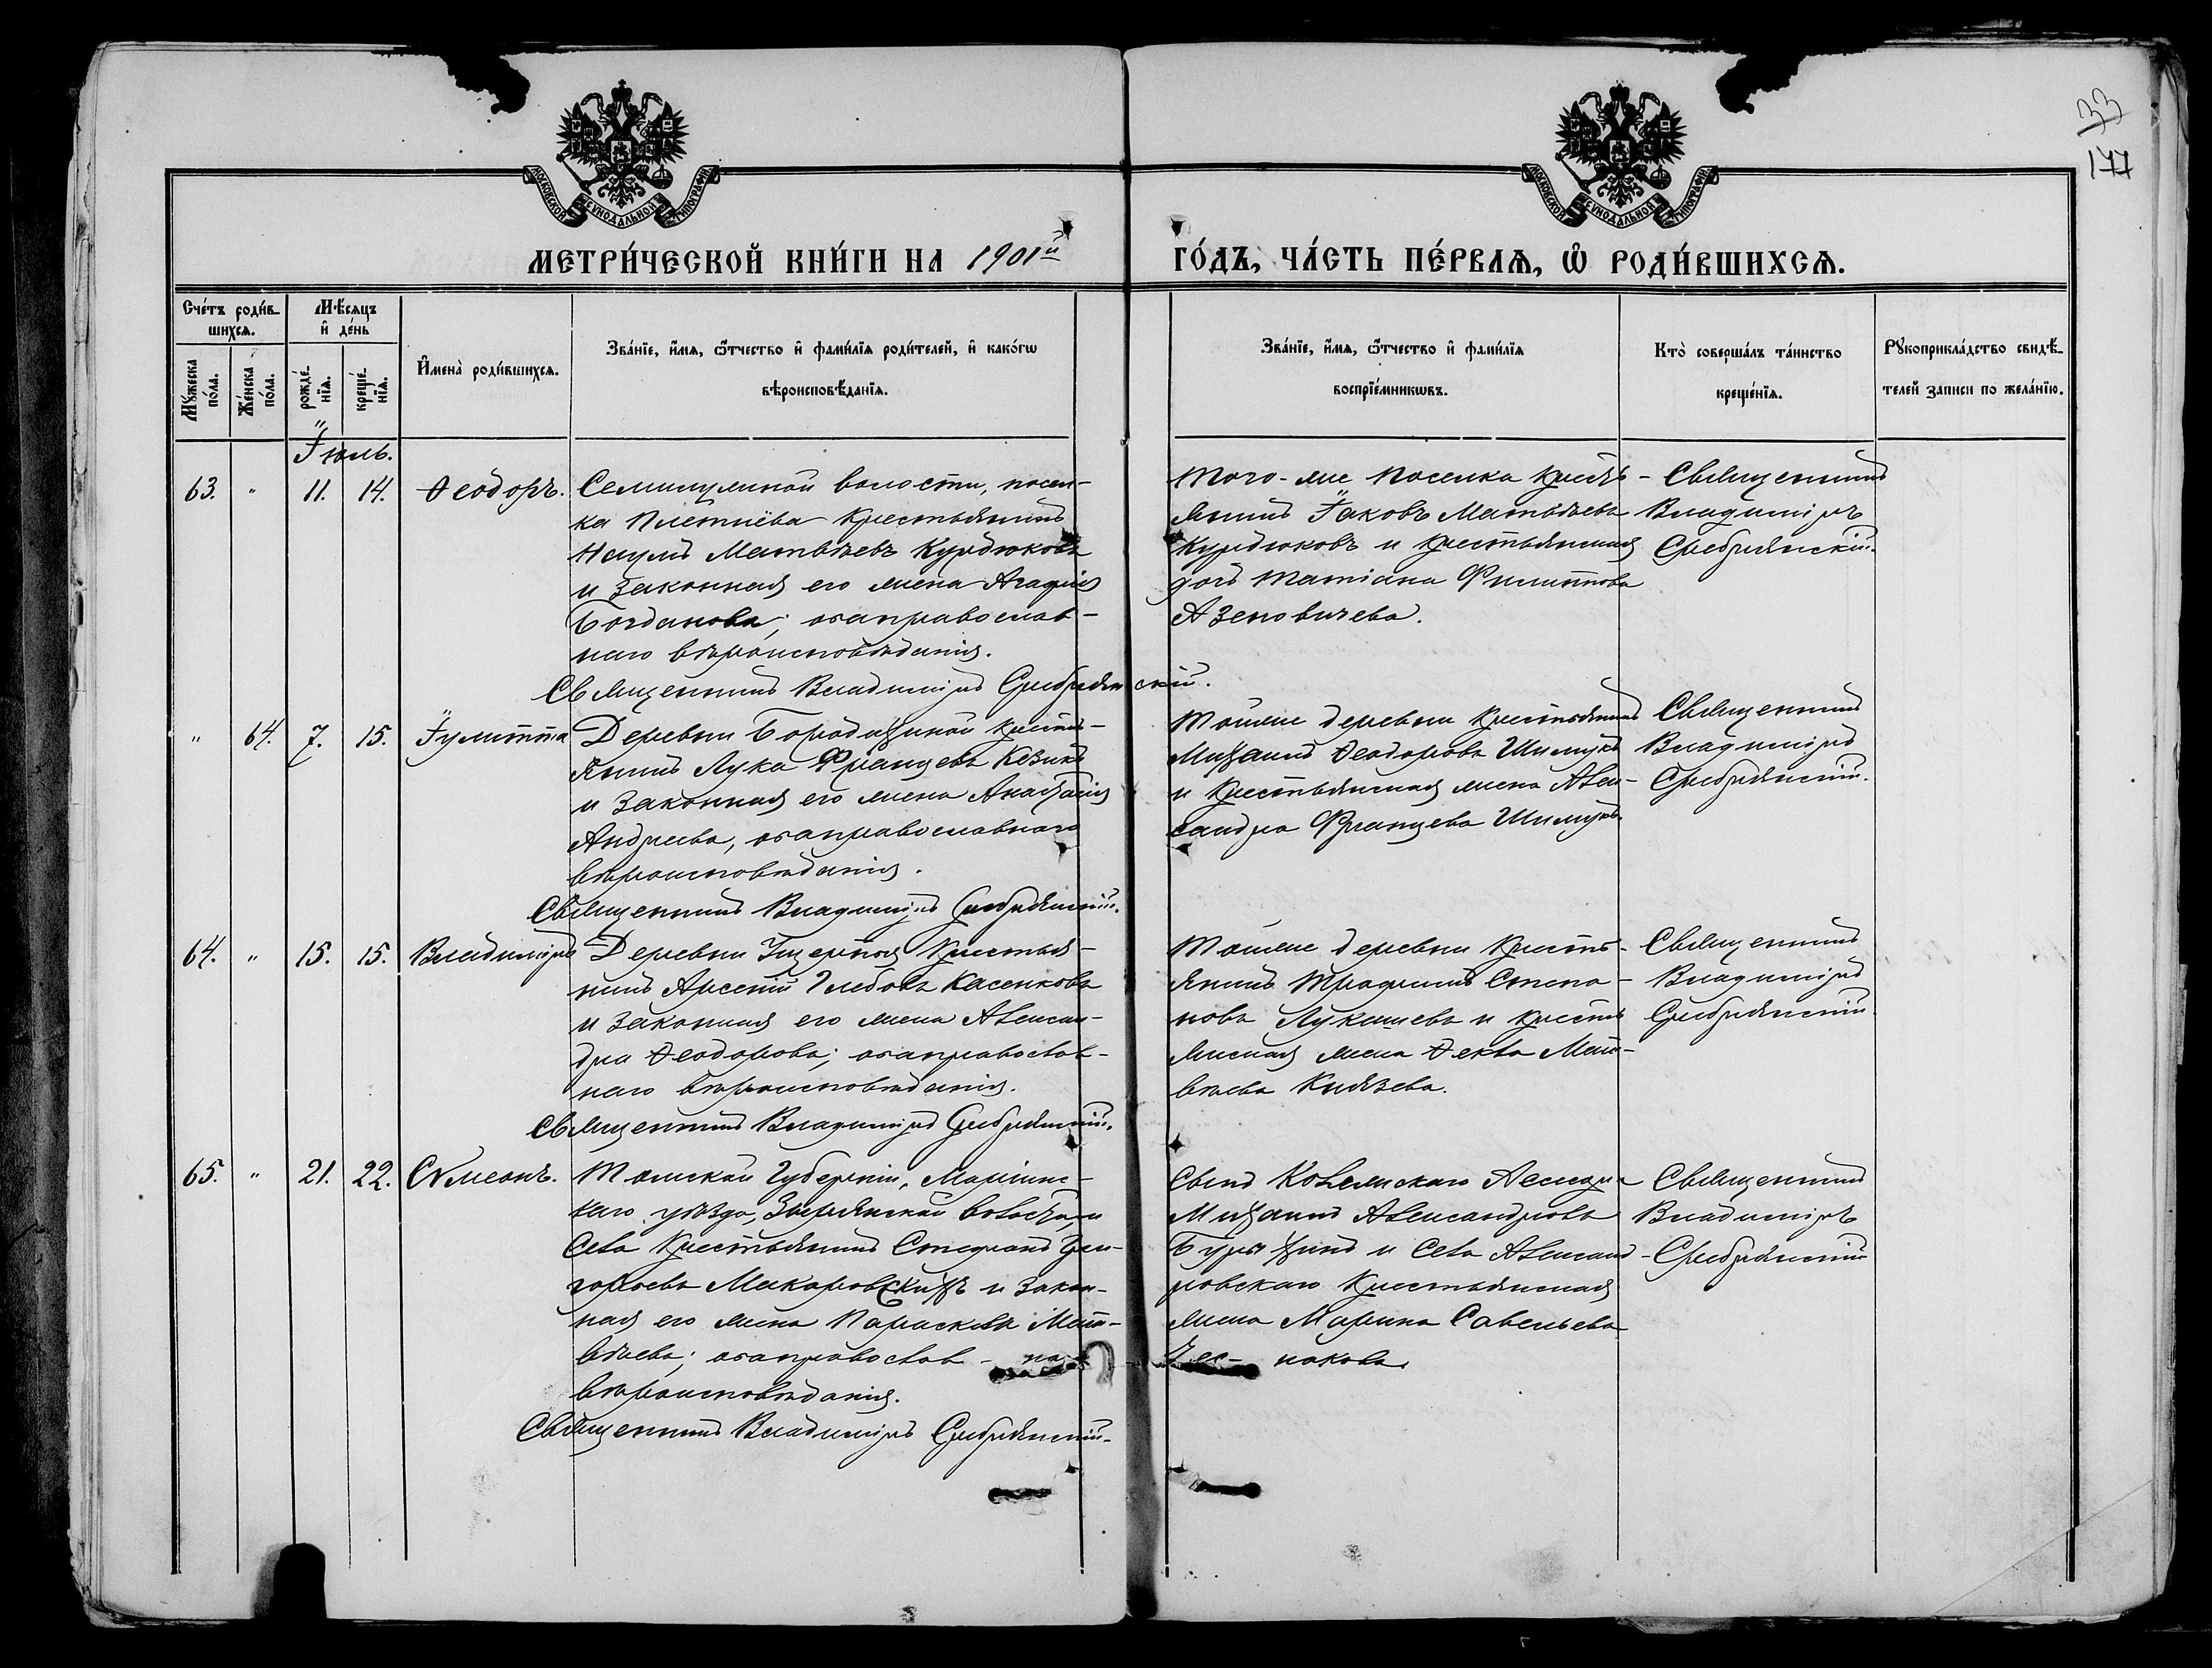 33
177
МОСКОВСКОЙ СѴНОДАЛЬНОЙ ТИПОГРАФІИ
МОСКОВСКОЙ СѴНОДАЛЬНОЙ ТИПОГРАФІИ
МЕТРИ́ЧЕСКОЙ КНИ́ГИ НА 1901й
ГО́ДЪ, ЧА́СТЬ ПЕ́РВАѦ, Ѡ РОДИ́ВШИХСѦ.
Сче́тъ роди́в-
шихсѧ.
Мѣ́сѧцъ
и҆ де́нь
Мꙋ́жеска по́ла.
Же́нска по́ла.
рожде́-нїѧ.
креще́-нїѧ.
И҆мена̀ роди́вшихсѧ.
Зва́нїе, и҆́мѧ, ѻ҆́тчество и҆ фами́лїѧ роди́телей, и҆ како́гѡ
вѣроисповѣ́данїѧ.
Зва́нїе, и҆́мѧ, ѻ҆́тчество и҆ фами́лїѧ
воспрїе́мникѡвъ.
Кто̀ соверша́лъ та́инство
креще́нїѧ.
Рꙋкоприкла́дство свидѣ́-
телей записи по жела́нїю.
Іюль.
63. " 11. 14. Ѳеодоръ.
волости, посел-
ка Плетнёва крестьянинъ
Наумъ Матвѣевъ Курдюковъ
и законная его жена Агафія
Богданова; оба православ-
наго вѣроисповѣданія.
Священникъ Владиміръ Сребрянскій.
Того-же поселка кресть-
янинъ Іаковъ Матвѣевъ
Курдюковъ и крестьянская
дочь Татіана Филиппова
Азеновичева.
Священникъ
Владиміръ
Сребрянскій.
" 64. 7. 15. Іулитта
Деревни Бородиной кресть-
янинъ Лука Францевъ Казикъ
и законная его жена Анастасія
Андреева, оба православнаго
вѣроисповѣданія.
Священникъ Владиміръ Сребрянскій.
Тойже деревни крестьянинъ
Михаилъ Ѳеодоровъ Шимукъ
и крестьянская жена Алек-
сандра Францева Шимукъ.
Священникъ
Владиміръ
Сребрянскій.
64. " 15. 15. Владиміръ
Деревни крестья-
нинъ Арсеній Глебовъ Касенковъ
и законная его жена Алексан-
дра Ѳеодорова; оба православ-
наго вѣроисповѣданія.
Священникъ Владиміръ Сребрянскій.
Тойже деревни кресть-
янинъ Трофимъ Степа-
новъ Лукашевъ и кресть-
янская жена Ѳекла Мат-
вѣева Князева.
Священникъ
Владиміръ
Сребрянскій.
65. " 21. 22. Сѵмеонъ.
Томской Губерніи, Маріинс-
каго уѣзда, Зырянской волости,
Села крестьянинъ Стефанъ Гри-
горьевъ Макаровскихъ и закон-
ная его жена Параскева Мат-
вѣева; оба православ-
вѣроисповѣданія.
Священникъ Владиміръ Сребрянскій.
Сынъ
Михаилъ Александровъ
и Села Александ-
ровскаго крестьянская
жена Марина Савельева
Чес- нокова.
Священникъ
Владиміръ
Сребрянскій